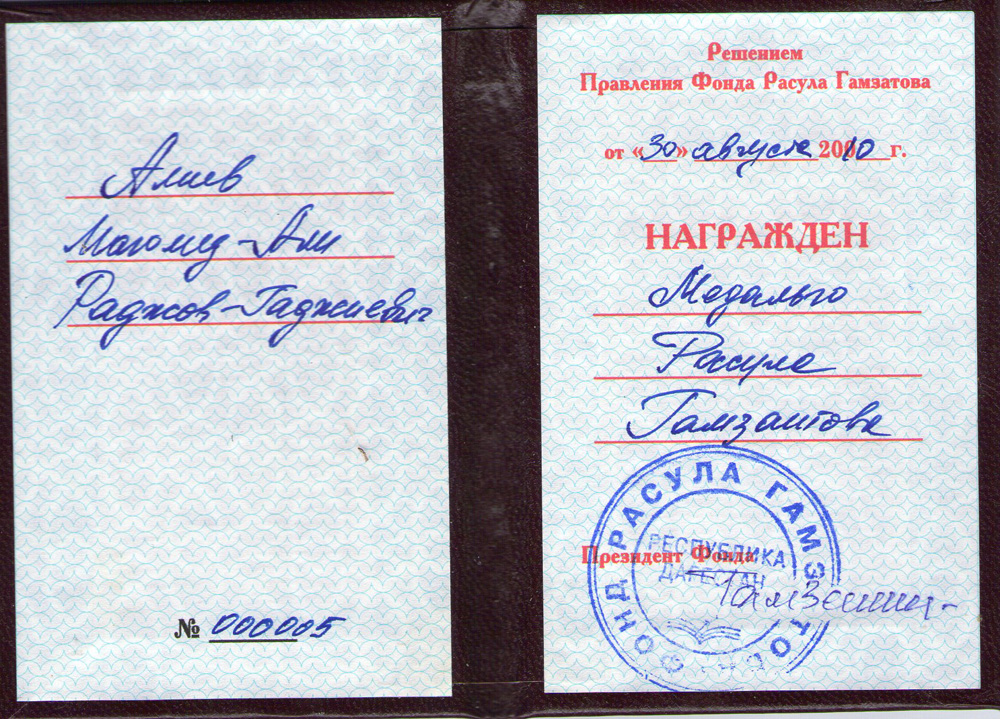 Алиев
Магомед-Али
Раджаб-Гаджиевич
№ 000005
Решением
Правления Фонда Расула Гамзатова
от «30» августа 2010 г.
НАГРАЖДЕН
Медалью
Расула
Гамзатова
Президент Фонда
ФОНД РАСУЛА ГАМЗАТОВА
РЕСПУБЛИКА
ДАГЕСТАН